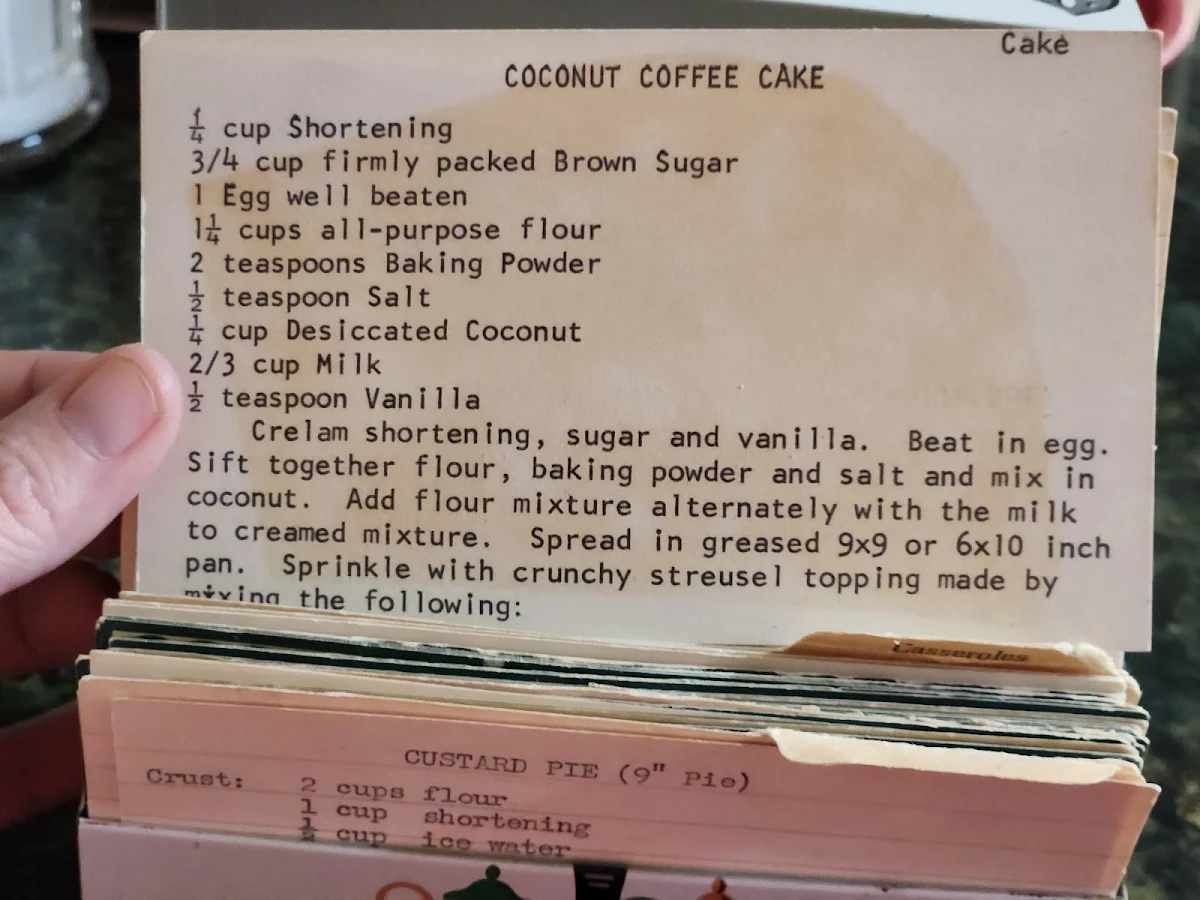 Cake
COCONUT COFFEE CAKE
¼ cup Shortening
3/4 cup firmly packed Brown Sugar
1 Egg well beaten
1¼ cups all-purpose flour
2 teaspoons Baking Powder
½ teaspoon Salt
¼ cup Desiccated Coconut
2/3 cup Milk
½ teaspoon Vanilla
Crelam shortening, sugar and vanilla. Beat in egg.
Sift together flour, baking powder and salt and mix in
coconut. Add flour mixture alternately with the milk
to creamed mixture. Spread in greased 9x9 or 6x10 inch
pan. Sprinkle with crunchy streusel topping made by
mixing the following:
Casseroles
CUSTARD PIE (9" Pie)
Crust: 2 cups flour
1 cup shortening
½ cup ice water